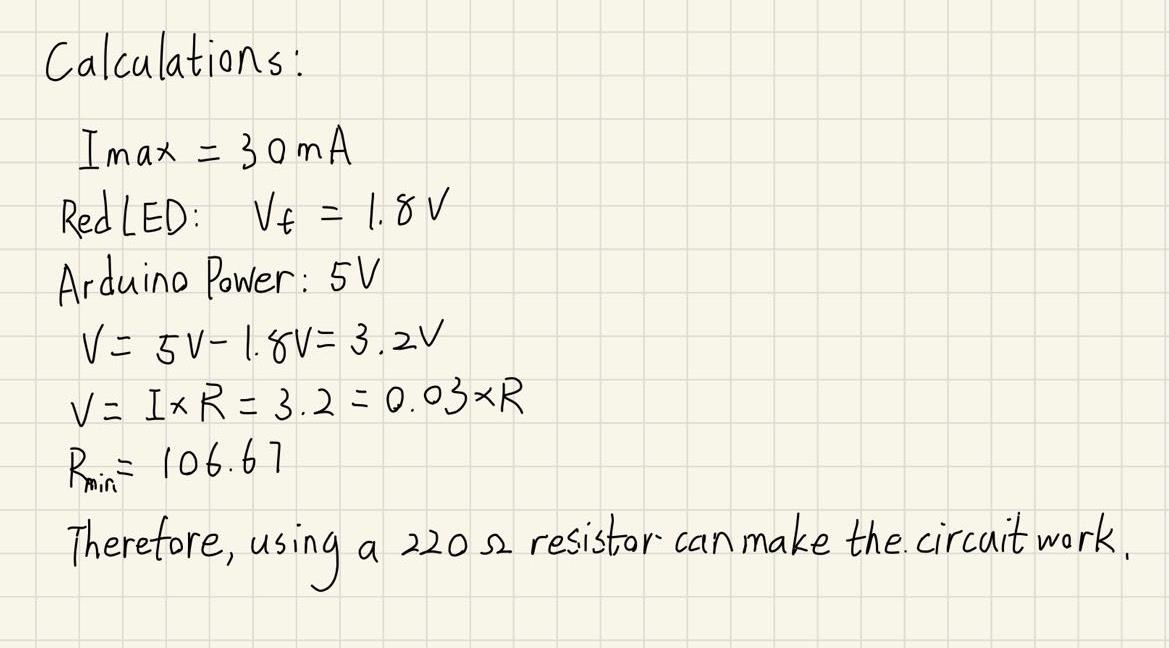 Calculations:
Imax = 30mA
Red LED: Vf = 1.8V
Arduino Power: 5V
V = 5V - 1.8V = 3.2V
V = I×R = 3.2 = 0.03×R
Rmin = 106.67
Therefore, using a 220Ω resistor can make the circuit work.